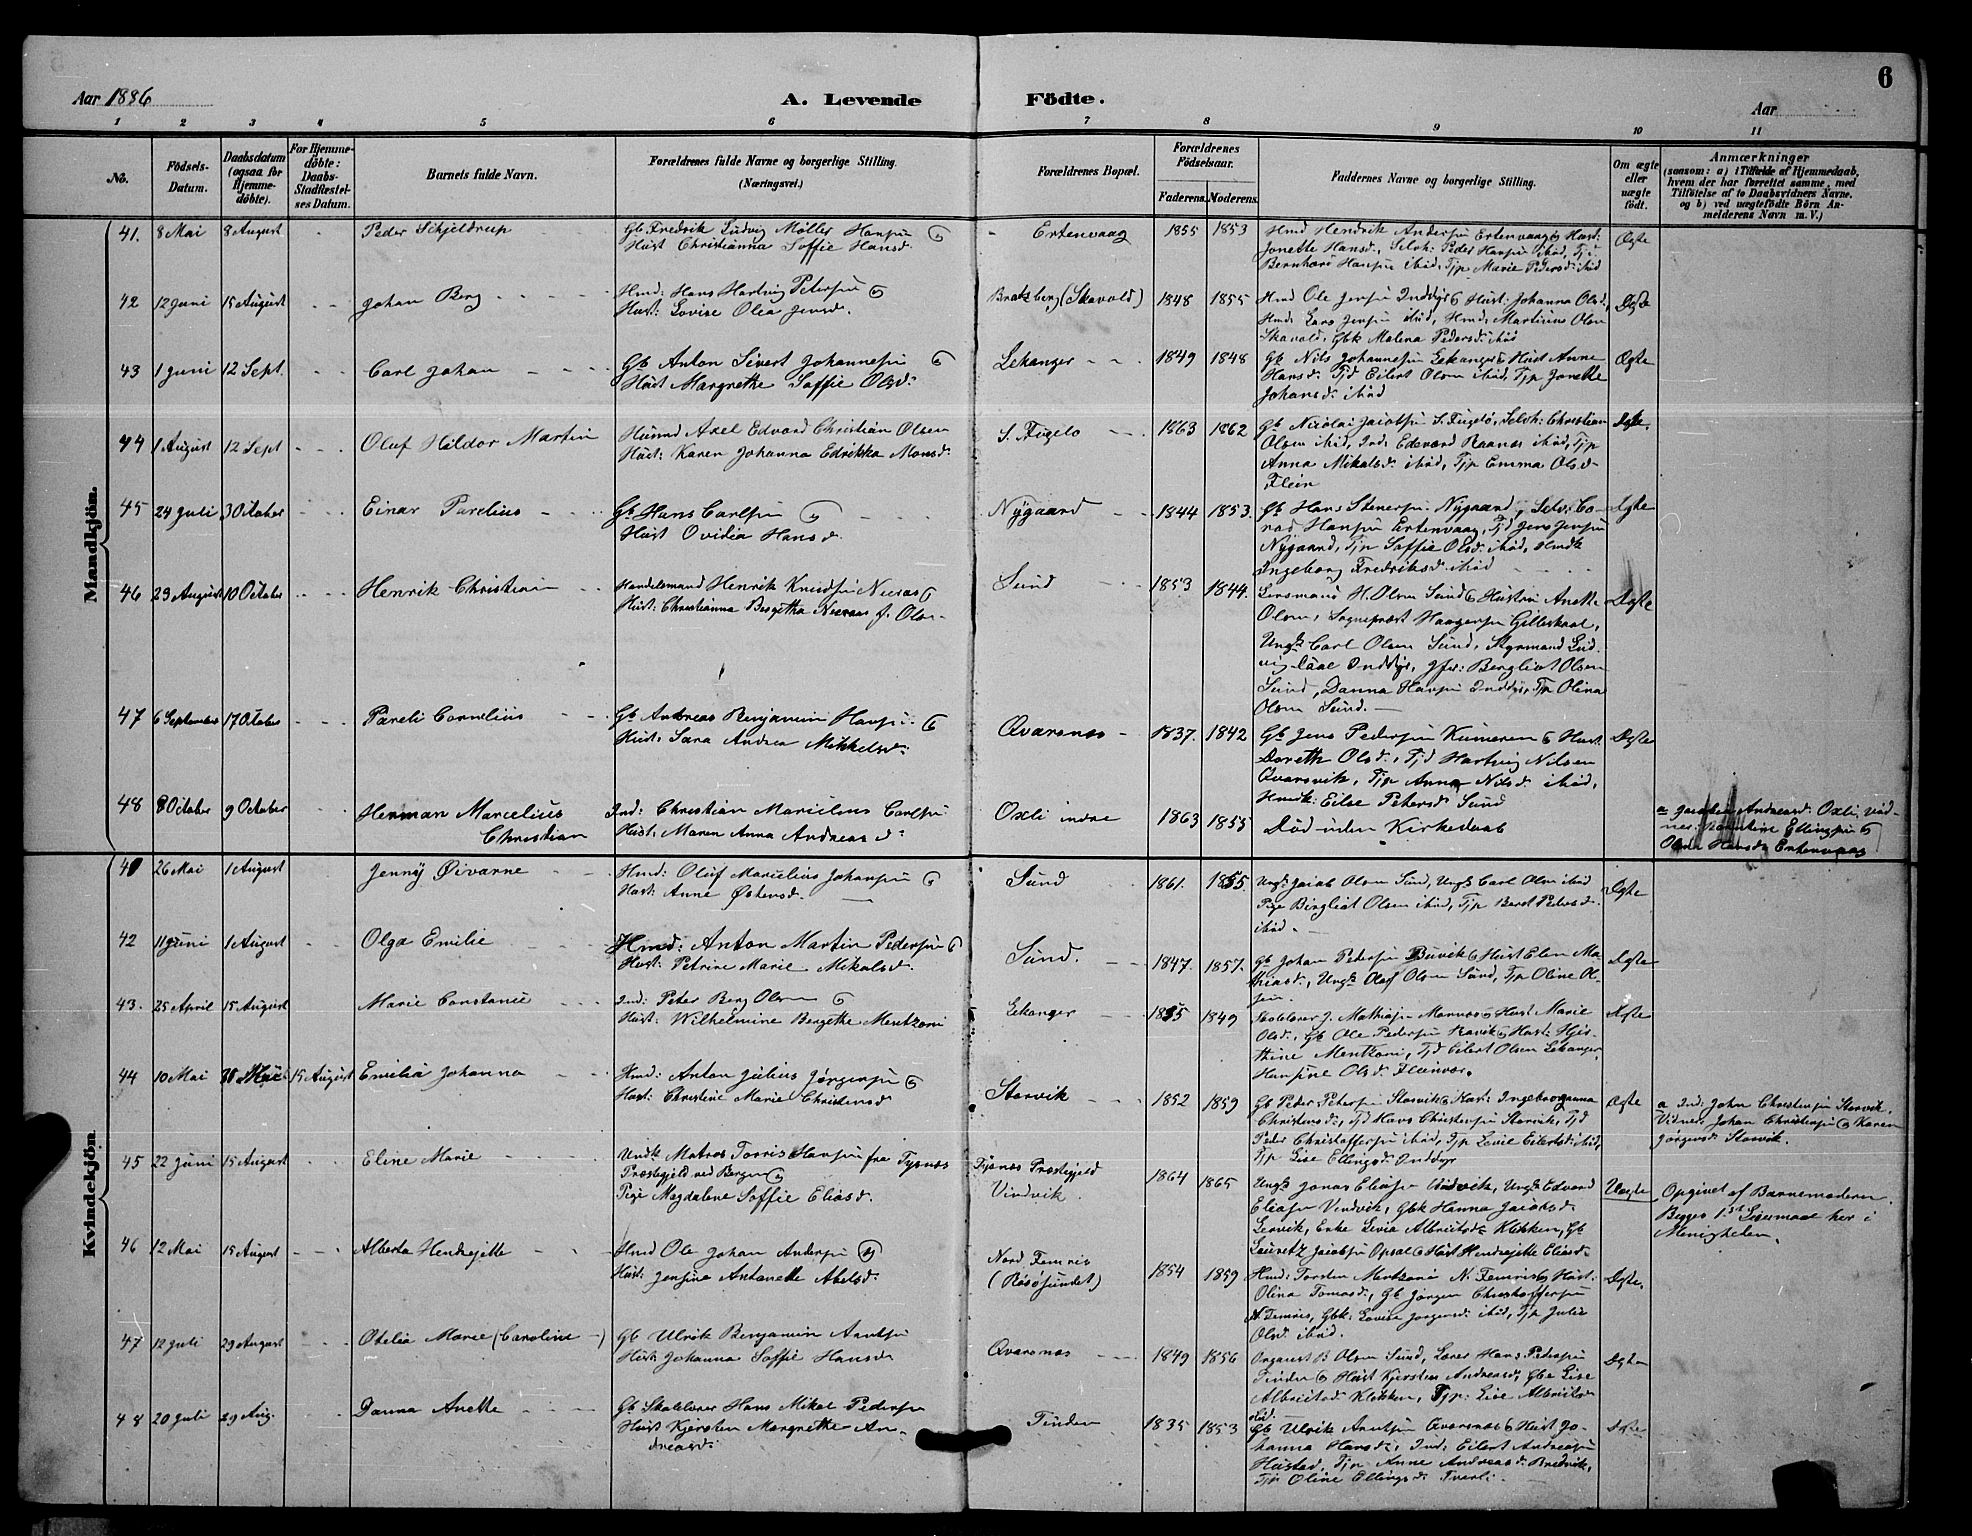 6
Aar 1886
A. Levende Födte.
Aar
1 2 3 4 5 6 7 8 9 10 11
No.
Födsels-Datum.
Daabsdatum (ogsaa for Hjemmedöbte).
For Hjemmedöbte: Daabs-Stadfæstelses Datum.
Barnets fulde Navn.
Forældrenes fulde Navne og borgerlige Stilling. (Næringsvei.)
Forældrenes Bopæl.
Forældrenes Födselsaar.
Faderens. Moderens.
Faddernes Navne og borgerlige Stilling.
Om ægte eller uægte födt.
Anmærkninger
(saasom: a) i Tilfælde af Hjemmedaab, hvem der har forrettet samme, med Tilföielse af to Daabsvidners Navne, og b) ved uægtefödte Börn Anmelderens Navn m. V.)
Mandkjön.
41. 8 Mai 8 August Peder Schjeldrup
Gb Fredrik Ludvig Møller Hansen
Hust Christianna Soffie Hansd.
Ertenvaag 1855 1853
Hmd Hendrik Andersen Ertenvaag Hust:
Jonette Hansd., Selvh: Peder Hansen ibid, Tj:
Bernhard Hansen ibid, Tjp Marie Pedersd: ibid
Ægte
42 12 Juni 15 August Johan Berg
Hmd: Hans Hartvig Petersen
Hust: Lovise Olea Jensd.
Bratsberg (Skavold) 1848 1855
Hmd Ole Jensen Inddyr Hust: Johanna Olsd,
Hmd: Lars Jensen ibid, Hmd: Martinus Olsen
Skavold, Gbk Malena Pedersd: ibid
Ægte
43 1 Juni 12 Sept. Carl Johan
Gb Anton Sivert Johannesen
Hust Margrethe Soffie Olsd:
Lekanger 1849 1848
Gb Nils Johannesen Lekanger Hust Anne
Hansd: Tjd Eilert Olsen ibid, Tjp Jonette
Johansd: ibid
Ægte
44 1 August 12 Sept Oluf Hildor Martin
Husmd Axel Edvard Christian Olsen
Hust: Karen Johanna Edrikka Monsd:
S. Fugelø 1863 1862
Gb Nicolai Jacobsen S. Fugelø, Selvh: Christian
Olsen ibid, Ind: Edevard Raanes ibid, Tjp
Anna Mikalsd: ibid, Tjp Emma Olsd:
Flein
Ægte.
45 24 Juli 3 October Einar Parelius
Gb Hans Carlsen
Hust Ovidia Hansd.
Nygaard 1844 1853.
Gb Hans Stenersen Nygaard, Selv: Conrad
Hansen Ertenvaag, Tjd Jens Jensen
Nygaard, Tjp Soffie Olsd: ibid, Hmdk
Ingeborg Fredriksd. ibid
Ægte
46 29 August 10 October Henrik Christian
Handelsmand Henrik Knudsen
Hust: Christianna Bergetha f. Olsen
Sund 1853 1844.
Lensmand H. Olsen Sund Hustru Anette
Olsen, Sognepræst Gilleskaal,
Ungk Carl Olsen Sund, Styrmand Ludvig
Inddyr, Bergliot Olsen
Sund, Danna Hansen Inddyr, Tjp Olina
Olsen Sund.
Ægte
47 6 September 17 October Pareli Cornelius
Gb Andreas Benjamin Hansen
Hust: Sara Andrea Mikkelsd:
Qvarsnes 1837. 1842
Gb Jens Pedersen Hust
Dorethe Olsd:, Tjd Hartvig Nilsen
Qvarsvik, Tjp Anna Nilsd: ibid,
Hmdk: Else Petersd: Sund
Ægte
48 8 October 9 October Herman Marcelius
Christian
Ind: Christian Marcelius Carlsen
Hust: Maren Anna Andreasd:
Oxli indre 1863 1855
Død uden Kirkedaab
a Andreasd: Oxli, Vidner:
Ellingsen
Hansd: Ertenvaag
Kvindekjön.
41 26 Mai 1 August Jenny Øivarne
Hmd: Oluf Marcelius Johansen
Hust: Anne Østensd.
Sund 1861. 1855.
Ungk: Jacob Olsen Sund, Ungk Carl Olsen ibid
Pige Bergliot Olsen ibid, Tjp Beret Petersd:
ibid.
Ægte
42 11 Juni 1 August Olga Emilie
Hmd: Anton Martin Pedersen
Hust: Petrine Marie Mikalsd.
Sund. 1847. 1857.
Gb Johan Pedersen Buvik Hust Elen Mathiasd:,
Ungk Olaf Olsen Sund, Tjp Oline Olsen.
Ægte
43. 25 April 15 August Marie Constanse
Ind: Peter Berg Olsen
Hust: Wilhelmine Bergethe Mentzoni
Lekanger 1855 1849
Skolelærer J. Mathisen Mannes Hust Marie
Olsd:, Gb Ole Pedersen Hust:
Mentzoni, Tjd Eilert Olsen Lekanger,
Hansine Olsd: Fleinvær.
Ægte
44 10 Mai 15 August Emilie Johanna
Hmd: Anton Julius Jørgensen
Hust: Christine Marie Christensd
Storvik 1852 1859
Gb Peder Petersen Storvik Hust: Ingeboranna
Christensd:, Tjd Hans Christensen Storvik, Tjd
Peder Christoffersen ibid, Tjp Eilertsd: ibid,
Tjp Lise Ellingsd: Inddyr
Ægte
a Ind: John Christensen Storvik.
Vidner: Johan Christensen Karen
Jørgensd: Storvik.
45 22 Juni 15 August Eline Marie
Ungk: Matros Torris Hansen fra Tysnes
Præstegjeld ved Bergen
Pige Magdalene Soffie Eliasd.
Tysnes Præstegjeld
Vindvik. 1864 1865
Ungk Jonas Eliasen Vindvik, Ungk Edvard
Eliasen Vindvik, Gbk Hanna Jacobsd.
Enke Levia Albrigtsd: Klokken, Gb
Lauretz Jacobsen Opsal Hust Hendrejette Eliasd:
Uægte
Opgivet af Barnemoderen.
Begges 1ste Leiermaal her i
Menigheden.
46 12 Mai 15 August Alberta Hendrejette
Hmd Ole Johan Andersen
Hust: Jensine Antonette Abelsd:
Nord Femris
(Røsøsundet) 1854 1859
Hmd: Torsten Mentzoni N. Femris Hust:
Olina Tomasd:, Gb Jørgen Christoffersen
N Femris, Gbk: Lovise Jørgensd: ibid, Tjp Julie
Olsd: ibid.
Ægte.
47 12 Juli 29 August Otelia Marie (Caroline)
Gb Ulrik Benjamin Arntsen
Hust: Johanna Soffie Hansd
Qvarsnes 1849 1856
Organist B Olsen Sund, Lærer Hans Pedersen
Tinden Hust Kjersten Andreasd:, Gbe Lise
Albrigtsd Klokken, Tjp: Lise Albrigtsd:
ibid.
Ægte
48 20 Juli 29 Aug. Danna Anette
Gb Skolelærer Hans Mikal Pedersen
Hust Kjersten Margrethe Andreasd:
Tinden 1835 1853
Gb Ulrik Arntsen Qvarsnes Hust Johanna
Hansd:, Ind: Eilert Andreasen
Hustad, Tjp Anne Andreasd: Bredvik,
Tjp Oline Ellingsd: Tverli.
Ægte